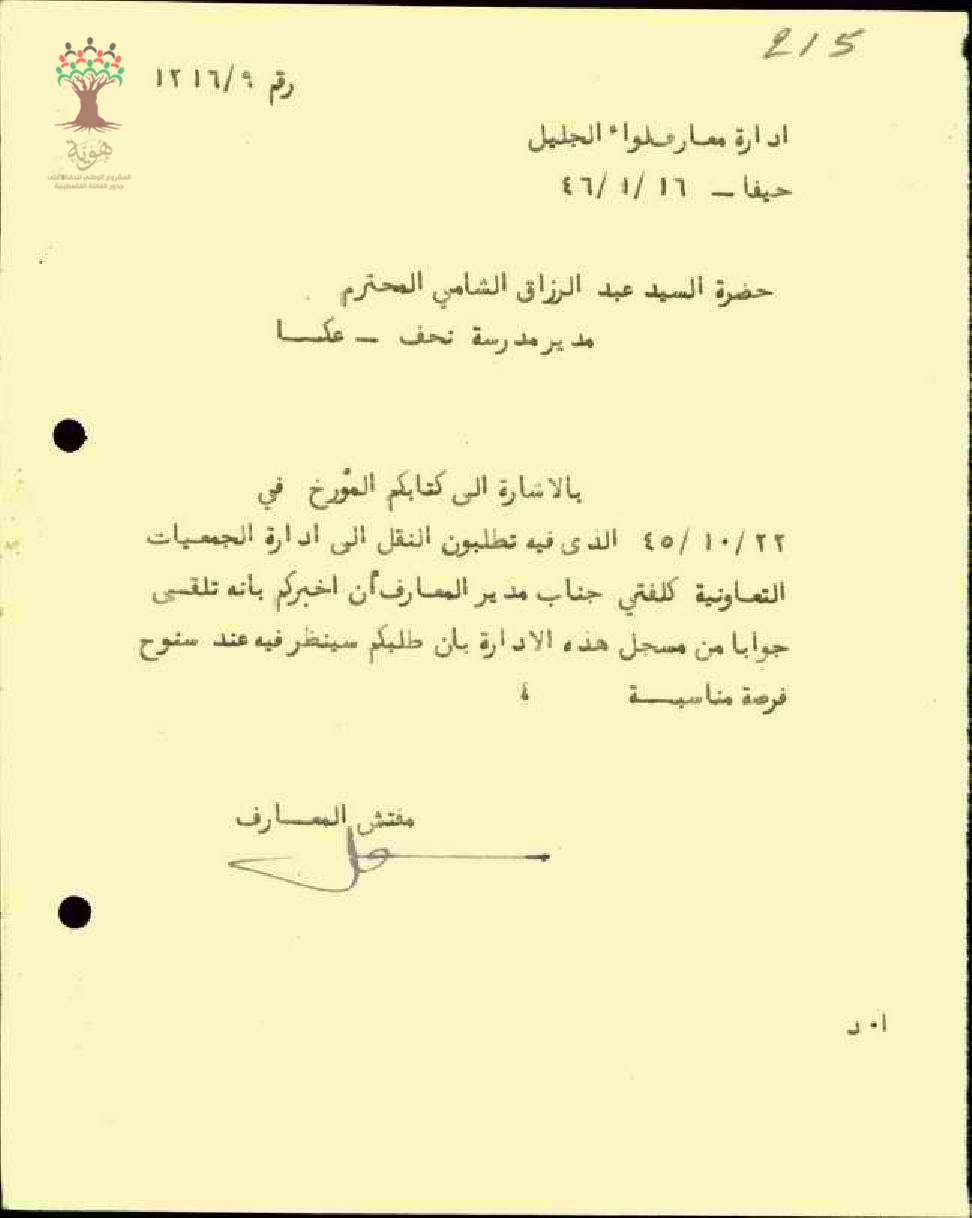 215
رقم ١٢١٦/٩
هوية
المشروع الوطني للحفاظ على
جذور العائلة الفلسطينية
ادارة معارف لواء الجليل
حيفا – ١٦ /١ /٤٦
حضرة السيد عبد الرزاق الشامي المحترم
مدير مدرسة نحف – عكـــا
بالاشارة الى كتابكم المؤرخ في
٢٢/ ١٠/ ٤٥ الذى فيه تطلبون النقل الى ادارة الجمعيات
التعاونية كلفتي جناب مدير المعارف أن اخبركم بانه تلقـى
جوابا من مسجل هذه الادارة بان طلبكم سينظر فيه عند سنوح
فرصة مناسبـــة ؛
مفتش المعـــارف
ا٠ د